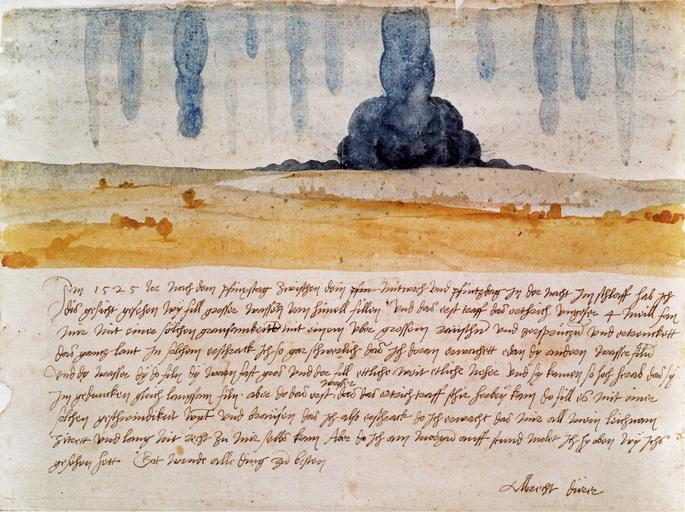 Im 1525 Jor nach dem pfinxstag zwischen dem mitwoch und pfintzdag in der nacht im schlaff hab ich
dis gesicht gesehen wy fill grosser wassern vom himell fillen Und das erst traff das erthrich ungefer 4 meill fan
mir mit einer solchen grausamkeitt mit einem uber grossem raüschn und zersprützn und ertrenckett
das gantz lant In solchem erschrack ich so gar schwerlich das ich doran erwachett edan dy andern wasser filn
Und dy wasser dy do filn dy warn fast gros und der fill ettliche weit etliche neher und sy kamen so hoch herab das sy
im gedancken gleich langsam filn aber do das erst wasser das das ertrich traff schir herbey kam do fill es mit einer
solchen geschwindikeit wynt und braüsen das ich also erschrack do ich erwacht das mir all mein leichnam
zitrett und lang nit recht zu mir selbs kam Aber do ich am morgen auff stund molet ich hy oben wy ichs
gesehen hett Got wende alle ding zu besten
Albrecht dürer